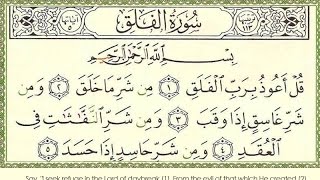 سُورَةُ الْفَلَقِ
بِسْمِ اللَّهِ الرَّحْمَٰنِ الرَّحِيمِ
قُلْ أَعُوذُ بِرَبِّ الْفَلَقِ ١ مِن شَرِّ مَا خَلَقَ ٢ وَمِن
شَرِّ غَاسِقٍ إِذَا وَقَبَ ٣ وَمِن شَرِّ النَّفَّاثَاتِ فِي
الْعُقَدِ ٤ وَمِن شَرِّ حَاسِدٍ إِذَا حَسَدَ ٥
Say, "I seek refuge in the Lord of daybreak (1) From the evil of that which He created (2)